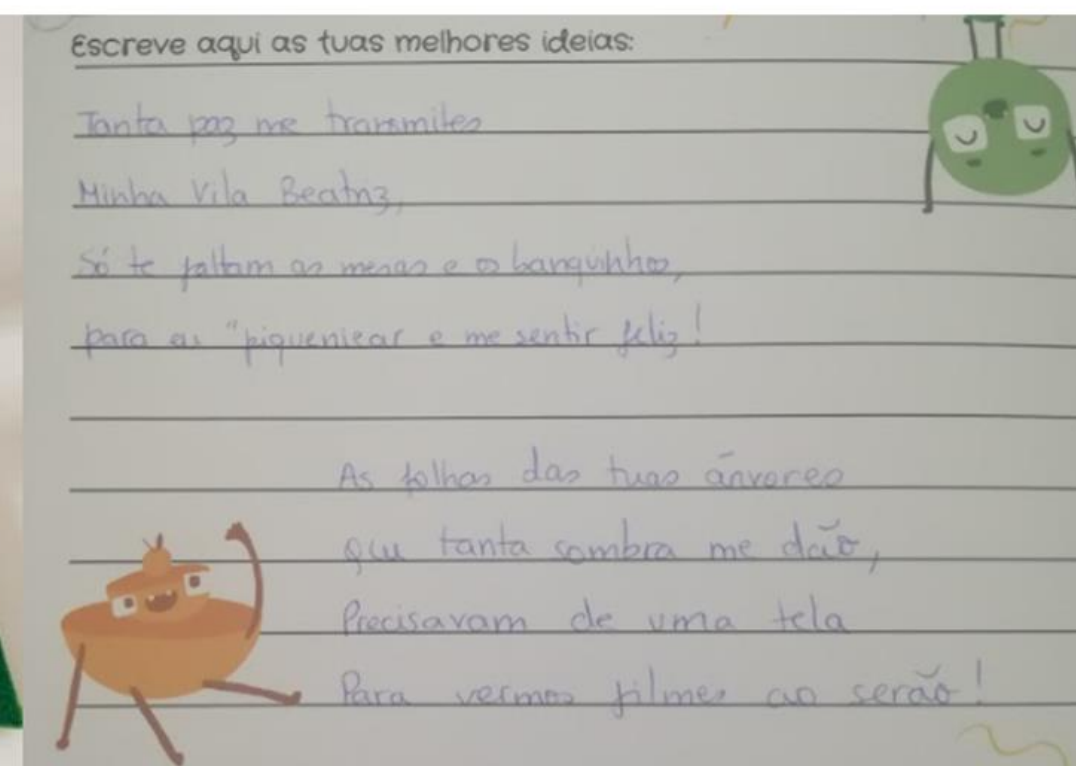 Escreve aqui as tuas melhores ideias:
Tanta paz me transmites
Minha Vila Beatriz,
Só te faltam as mesas e os banquinhos,
para as "piquenicar e me sentir feliz!
As folhas das tuas árvores
que tanta sombra me dão,
Precisavam de uma tela
Para vermos filmes ao serão!